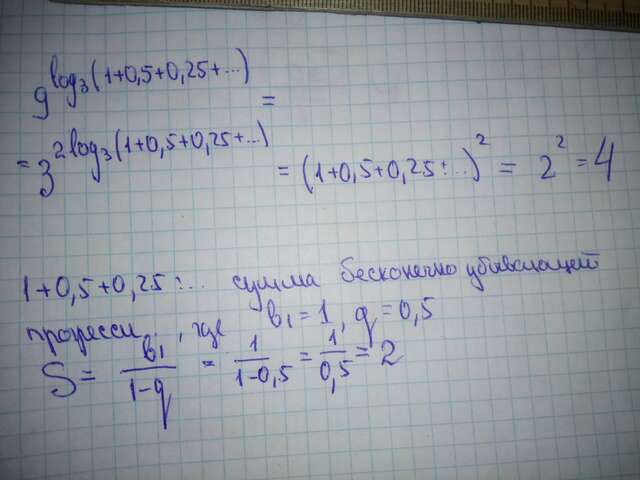 9^log₃(1+0,5+0,25+...) =
= 3^2log₃(1+0,5+0,25+...) = (1+0,5+0,25+...)² = 2² = 4
1+0,5+0,25+... сумма бесконечно убывающей
прогресси.., где b₁=1, q=0,5
S = b₁/(1-q) = 1/(1-0,5) = 1/0,5 = 2